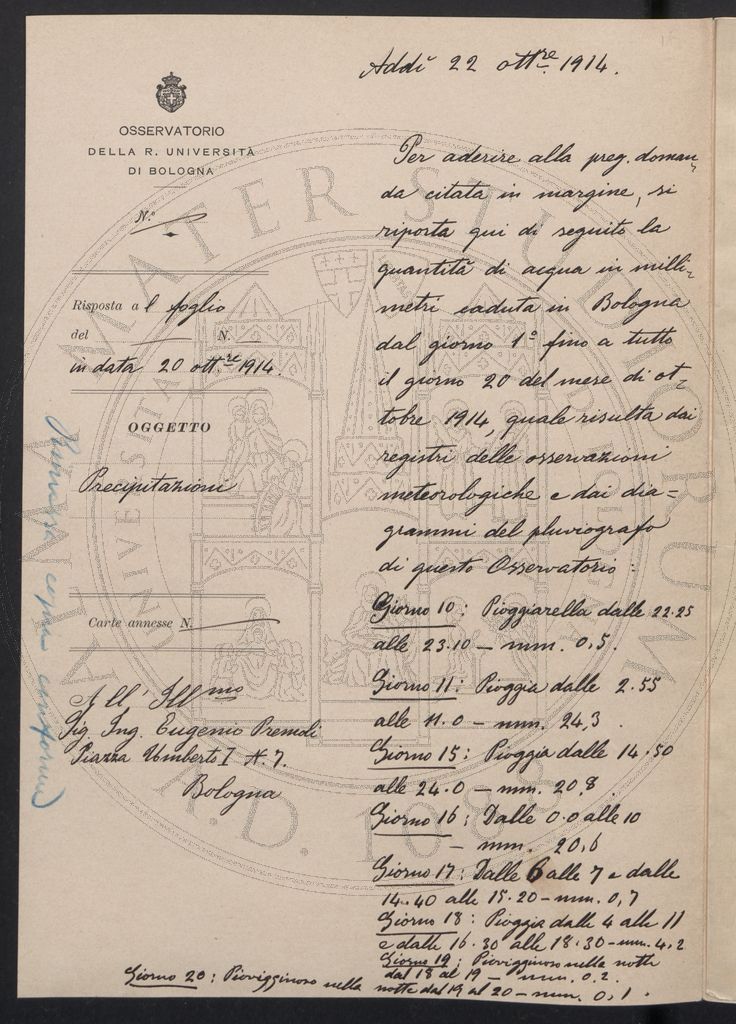 Addì 22 ott.re 1914.
OSSERVATORIO
DELLA R. UNIVERSITÀ
DI BOLOGNA
N.o
Risposta al foglio
del N.
in data 20 ott.re 1914.
OGGETTO
Precipitazioni
Carte annesse N.
All' Ill.mo
Sig. Ing. Eugenio
Piazza Umberto I N. 7.
Bologna
Rimessa copia conforme
Per aderire alla preg. doman-
da citata in margine, si
riporta qui di seguito la
quantità di acqua in milli-
metri caduta in Bologna
dal giorno 1° fino a tutto
il giorno 20 del mese di ot-
tobre 1914, quale risulta dai
registri delle osservazioni
meteorologiche e dai dia=
grammi del pluviografo
di questo Osservatorio:
Giorno 10: Pioggiarella dalle 22.25
alle 23.10 – mm. 0,5.
Giorno 11: Pioggia dalle 2.55
alle 11.0 – mm. 24,3.
Giorno 15: Pioggia dalle 14.50
alle 24.0 – mm. 20,8.
Giorno 16: Dalle 0.0 alle 10
– mm. 20,6
Giorno 17: Dalle 6 alle 7 e dalle
14.40 alle 15.20 – mm. 0,7
Giorno 18: Pioggia dalle 4 alle 11
e dalle 16.30 alle 18.30 – mm. 4,2
Giorno 19: Piovigginoso nella notte
dal 18 al 19 – mm. 0.2.
Giorno 20: Piovigginoso nella notte dal 19 al 20 – mm. 0,1.
ALMA MATER STUDIORUM
A.D. 1088